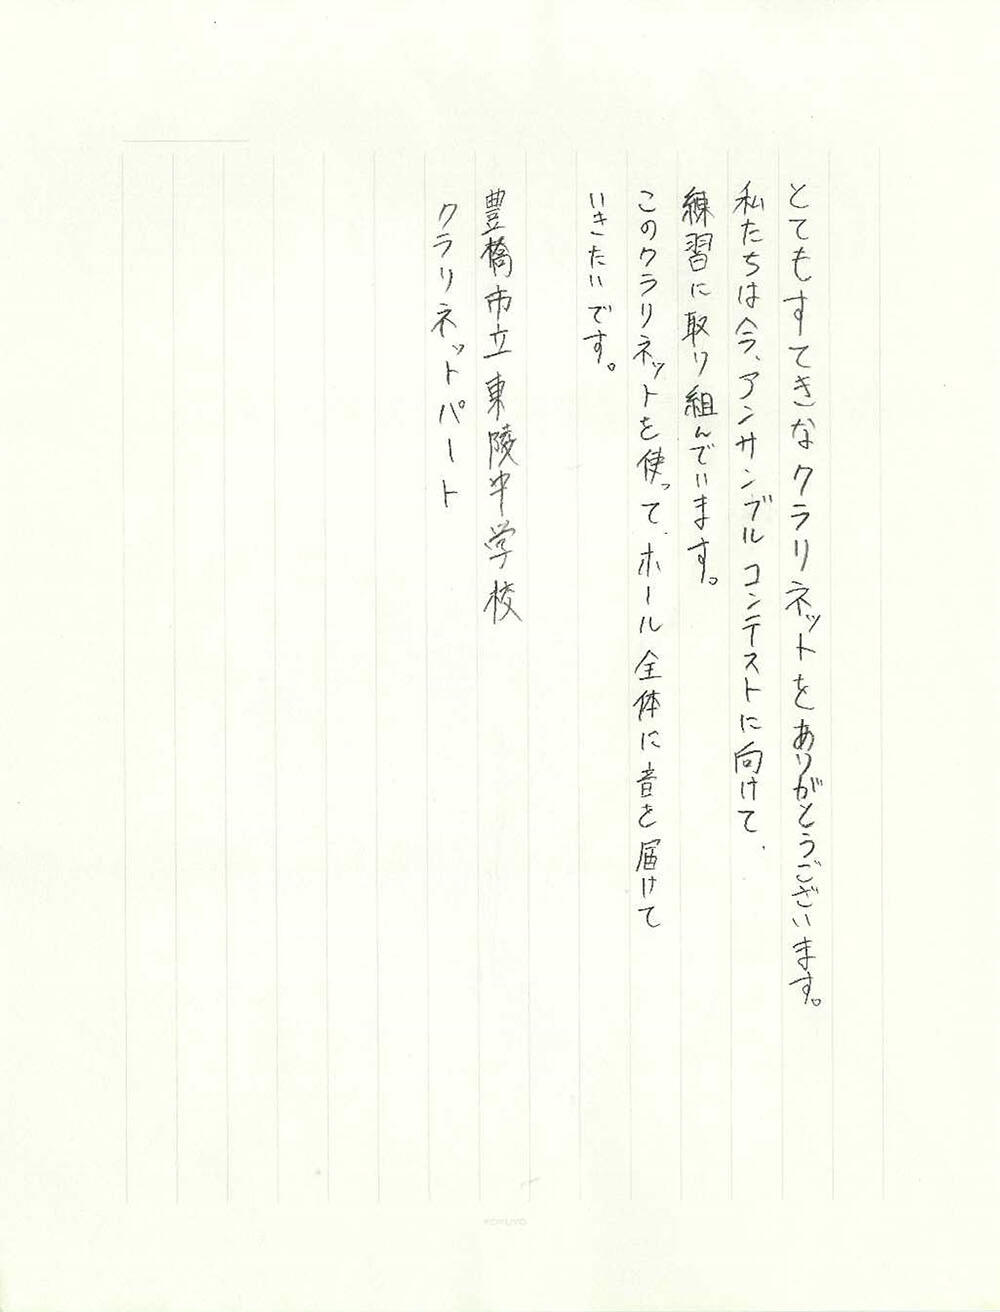 とてもすてきなクラリネットをありがとうございます。
私たちは今、アンサンブルコンテストに向けて、
練習に取り組んでいます。
このクラリネットを使って、ホール全体に音を届けて
いきたいです。
豊橋市立東陵中学校
クラリネットパート
KOKUYO